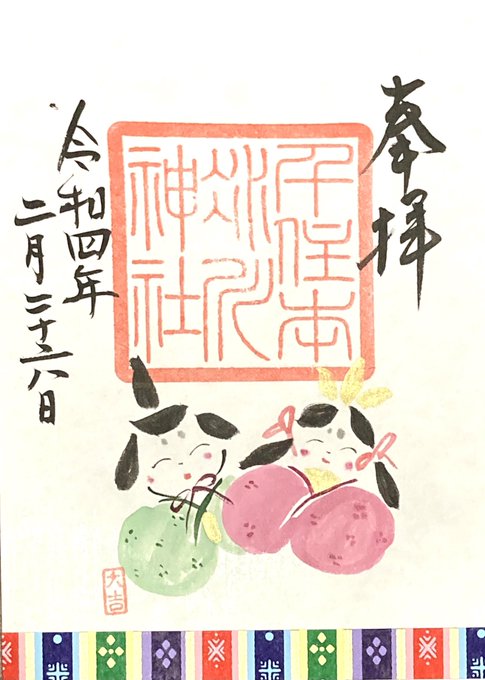 奉拝
千住本
氷川
神社
令和四年
二月二十六日
大吉